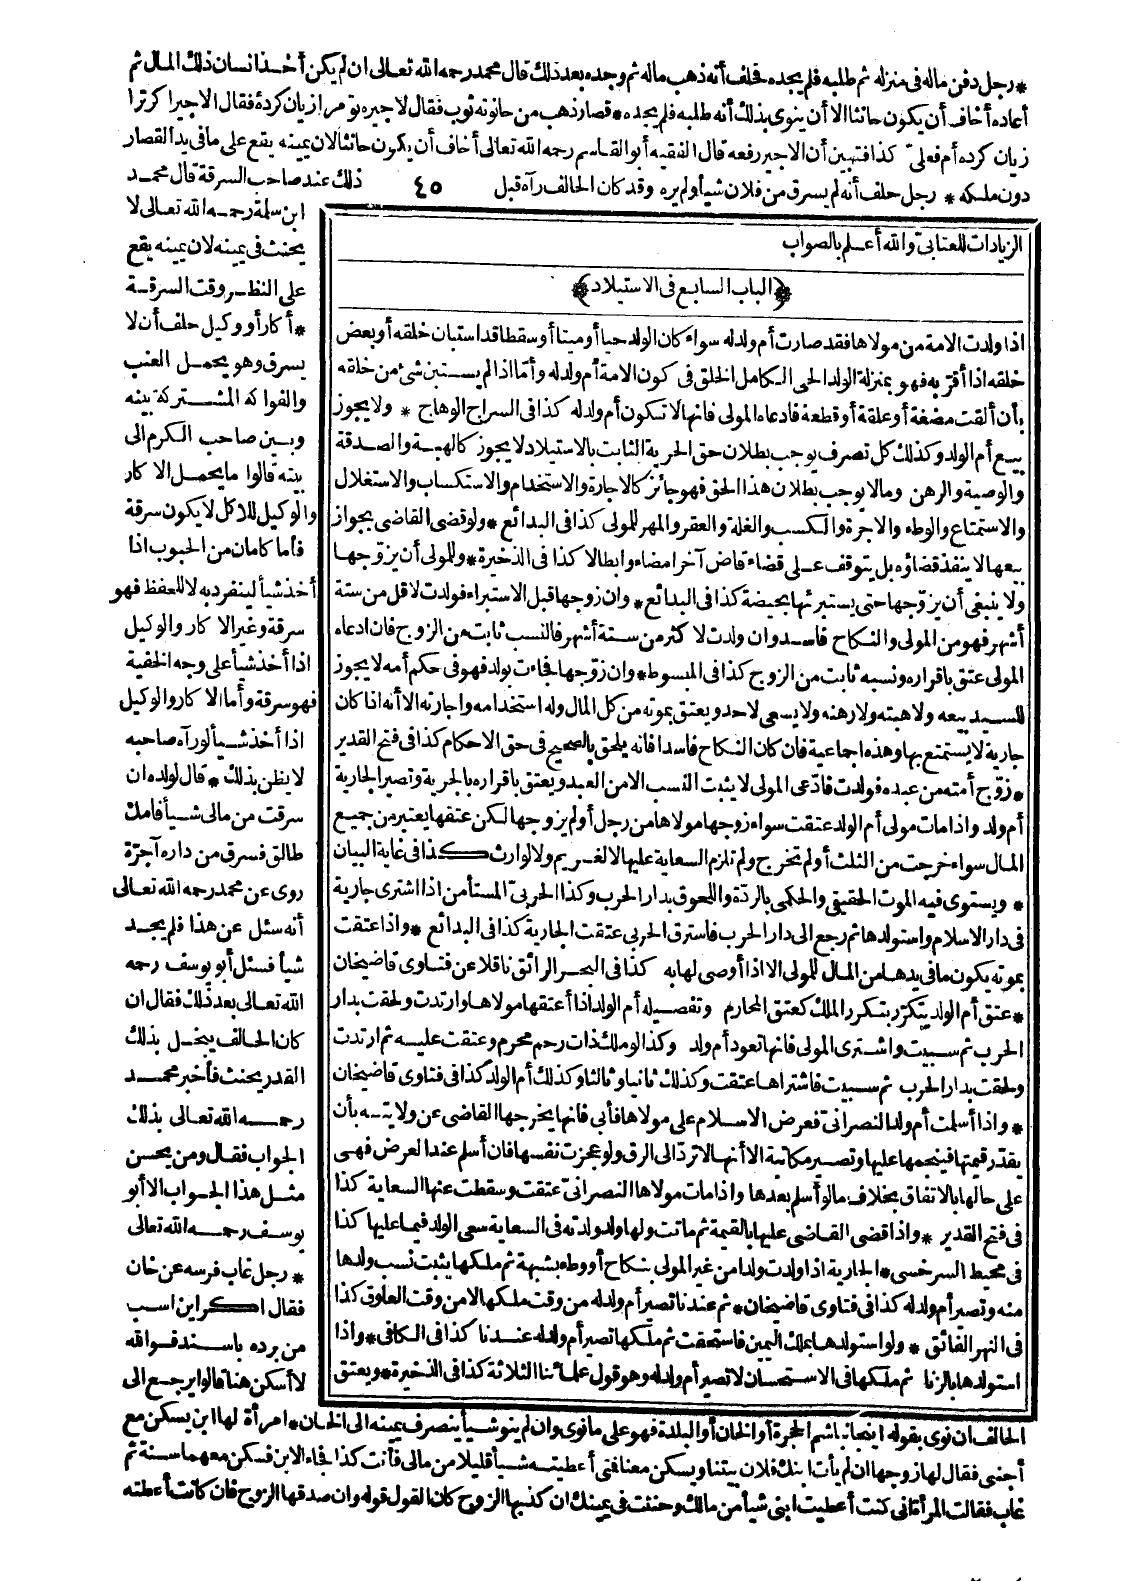 * رجل دفن ماله فى منزله ثم طلبه فلم يجده فحلف أنه ذهب ماله ثم وجده بعد ذلك قال محمد رحمه الله تعالى ان لم يكن أخذ انسان ذلك المال ثم
أعاده أخاف أن يكون حانثا الا أن ينوى بذلك أنه طلبه فلم يجده * قصار ذهب من حانوته ثوب فقال لاجيره تو مرا زيان كردهٔ فقال الاجير اكر ترا
زيان كرده أم فعلىّ كذا فتبين أن الاجير رفعه قال الفقيه أبو القاسم رحمه الله تعالى أخاف أن يكون حانثا لان يمينه يقع على ما فى يد القصار
دون ملكه * رجل حلف أنه لم يسرق من فلان شيأ ولم يره وقد كان الحالف رآه قبل
٤٥
ذلك عند صاحب السرقة قال محمد
ابن سلمة رحمه الله تعالى لا
يحنث فى يمينه لان يمينه يقع
على النظر وقت السرقة
* أكار أو وكيل حلف أن لا
يسرق وهو يحمل العنب
والفواكه المشتركة بينه
وبين صاحب الكرم الى
بيته قالوا ما يحمل الاكار
والوكيل للاكل لا يكون سرقة
فأما كان من الحبوب اذا
أخذ شيأ لينفرد به لا للحفظ فهو
سرقة وغير الاكار والوكيل
اذا أخذ شيأ على وجه الخفية
فهو سرقة وأما الاكار والوكيل
اذا أخذ شيأ لو رآه صاحبه
لا يظن بذلك * قال لولده ان
سرقت من مالى شيأ فامك
طالق فسرق من داره آجرّة
روى عن محمد رحمه الله تعالى
أنه سئل عن هذا فلم يجد
شيأ فسئل أبو يوسف رحمه
الله تعالى بعد ذلك فقال ان
كان الحالف يبخل بذلك
القدر يحنث فأخبر محمد
رحمه الله تعالى بذلك
الجواب فقال ومن يحسن
مثل هذا الجواب الا أبو
يوسف رحمه الله تعالى
* رجل غاب فرسه عن خان
فقال اكر اين اسب
من برده باسند فوالله
لا أسكن هنا قالوا يرجع الى
الزيادات للعتابى والله أعلم بالصواب
﴿الباب السابع فى الاستيلاد﴾
اذا ولدت الامة من مولاها فقد صارت أم ولد له سواء كان الولد حيا أو ميتا أو سقطا قد استبان خلقه أو بعض
خلقه اذا أقرّ به فهو بمنزلة الولد الحى الكامل الخلق فى كون الامة أم ولد له وأما اذا لم يستبن شئ من خلقه
بأن ألقت مضغة أو علقة أو قطعة فادعاه المولى فانها لا تكون أم ولد له كذا فى السراج الوهاج * ولا يجوز
بيع أم الولد وكذلك كل تصرف يوجب بطلان حق الحرية الثابت بالاستيلاد لا يجوز كالهبة والصدقة
والوصية والرهن وما لا يوجب بطلان هذا الحق فهو جائز كالاجارة والاستخدام والاستكساب والاستغلال
والاستمتاع والوطء والاجرة والكسب والغلة والعقر والمهر للمولى كذا فى البدائع * ولو قضى القاضى بجواز
بيعها لا ينفذ قضاؤه بل يتوقف على قضاء قاض آخر امضاء وابطالا كذا فى الذخيرة * وللمولى أن يزوّجها
ولا ينبغى أن يزوّجها حتى يستبرئها بحيضة كذا فى البدائع * وان زوجها قبل الاستبراء فولدت لاقل من ستة
أشهر فهو من المولى والنكاح فاسد وان ولدت لاكثر من ستة أشهر فالنسب ثابت من الزوج فان ادعاه
المولى عتق باقراره ونسبه ثابت من الزوج كذا فى المبسوط * وان زوّجها فجاءت بولد فهو فى حكم أمه لا يجوز
للسيد بيعه ولا هبته ولا رهنه ولا يسعى لاحد ويعتق بموته من كل المال وله استخدامه واجارته الا أنه اذا كان
جارية لا يستمتع بها وهذه اجماعية فان كان النكاح فاسدا فانه يلحق بالصحيح فى حق الاحكام كذا فى فتح القدير
* زوّج أمته من عبده فولدت فادّعى المولى لا يثبت النسب الا من العبد ويعتق باقراره بالحرية وتصير الجارية
أم ولد واذا مات مولى أم الولد عتقت سواء زوجها مولاها من رجل أو لم يزوجها لكن عتقها يعتبر من جميع
المال سواء خرجت من الثلث أو لم تخرج ولم تلزم السعاية عليها لا لغريم ولا لوارث كذا فى غاية البيان
* ويستوى فيه الموت الحقيقى والحكمى بالردّة واللحوق بدار الحرب وكذا الحربىّ المستأمن اذا اشترى جارية
فى دار الاسلام واستولدها ثم رجع الى دار الحرب فاسترق الحربى عتقت الجارية كذا فى البدائع * واذا عتقت
بموته يكون ما فى يدها من المال للمولى الا اذا أوصى لها به كذا فى البحر الرائق ناقلا عن فتاوى قاضيخان
* عتق أم الولد يتكرّر بتكرر الملك كعتق المحارم وتفصيله أم الولد اذا أعتقها مولاها وارتدت ولحقت بدار
الحرب ثم سبيت واشترى المولى فانها تعود أم ولد وكذا لو ملك ذات رحم محرم وعتقت عليه ثم ارتدت
ولحقت بدار الحرب ثم سبيت فاشتراها عتقت وكذلك ثانيا وثالثا وكذلك أم الولد كذا فى فتاوى قاضيخان
* واذا أسلمت أم ولد النصرانىّ فعرض الاسلام على مولاها فأبى فانها يخرجها القاضى عن ولايته بأن
يقدّر قيمتها فينجمها عليها وتصير مكاتبة الا أنها لا تردّ الى الرق ولو عجزت نفسها فان أسلم عند العرض فهى
على حالها بالاتفاق بخلاف ما لو أسلم بعدها واذا مات مولاها النصرانىّ عتقت وسقطت عنها السعاية كذا
فى فتح القدير * واذا قضى القاضى عليها بالقيمة ثم ماتت ولها ولد ولدته فى السعاية سعى الولد فيما عليها كذا
فى محيط السرخسى * الجارية اذا ولدت ولدا من غير المولى بنكاح أو وطء بشبهة ثم ملكها يثبت نسب ولدها
منه وتصير أم ولد له كذا فى فتاوى قاضيخان * ثم عندنا تصير أم ولد له من وقت ملكها لا من وقت العلوق كذا
فى النهر الفائق * ولو استولدها بملك اليمين فاستحقت ثم ملكها تصير أم ولد له عندنا كذا فى الكافى * واذا
استولدها بالزنا ثم ملكها فى الاستحسان لا تصير أم ولد له وهو قول علمائنا الثلاثة كذا فى الذخيرة * ويعتق
الحالف ان نوى بقوله اينجا باشم الحجرة أو الخان أو البلدة فهو على ما نوى وان لم ينو شيأ ينصرف يمينه الى الخان * امرأة لها ابن يسكن مع
أجنبى فقال لها زوجها ان لم يأت ابنك فلان بيتنا ويسكن معنا فتى أعطيته شيأ قليلا من مالى فأنت كذا فجاء الابن فسكن معهما سنة ثم
غاب فقالت المرأة انى كنت أعطيت ابنى شيأ من مالك وحنثت فى يمينك ان كذبها الزوج كان القول قوله وان صدقها الزوج فان كانت أعطته